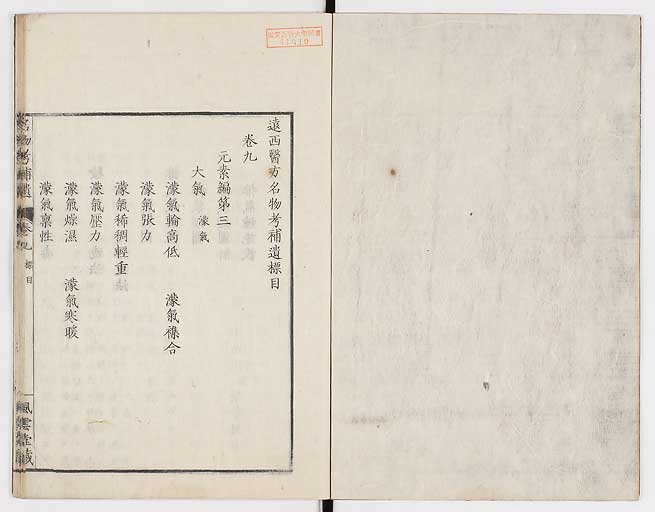 遠西醫方名物考補遺標目
卷九
元素編第三
大氣 濛氣
濛氣輪高低 濛氣襍合
濛氣張力
濛氣稀稠輕重
濛氣壓力
濛氣燥濕 濛氣寒暖
濛氣稟性
名物考補遺 卷九 標目
風雲堂藏